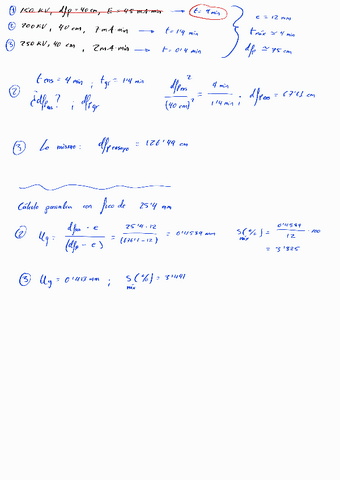 ① 150 KV, dfp = 40 cm, E = 45 mA·min → t = 9 min
② 200 KV, 40 cm, 7 mA·min → t = 1'4 min
③ 250 KV, 40 cm, 2 mA·min → t = 0'4 min
e = 12 mm
t máx ≃ 4 min
dfp ≃ 75 cm
② t ens = 4 min ; t gr = 1'4 min
¿dfp ens? ; dfp gr
dfp ens² / (40 cm)² = 4 min / 1'4 min ; dfp ens = 67'61 cm
③ Lo mismo: dfp ensayo = 126'49 cm
Cálculo penumbra con foco de 25'4 mm
② Ug = dfoco · e / (dfp - e) = 25'4 · 12 / (676'1 - 12) = 0'4589 mm
S(%) mín = 0'4589 / 12 · 100
= 3'825
③ Ug = 0'419 mm ; S(%) mín = 3'491